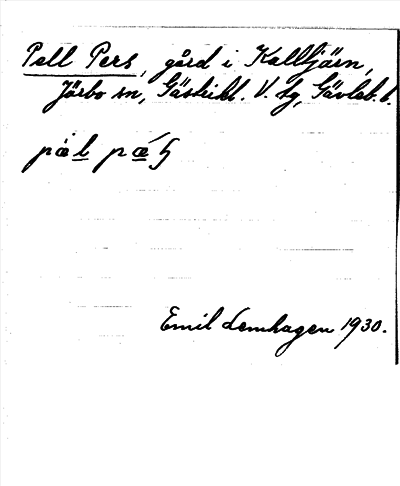 Pell Pers, gård i Kalltjärn,
Järbo sn, Gästrikl. V. tg, Gävleb. l.
Emil Lemhagen 1930.